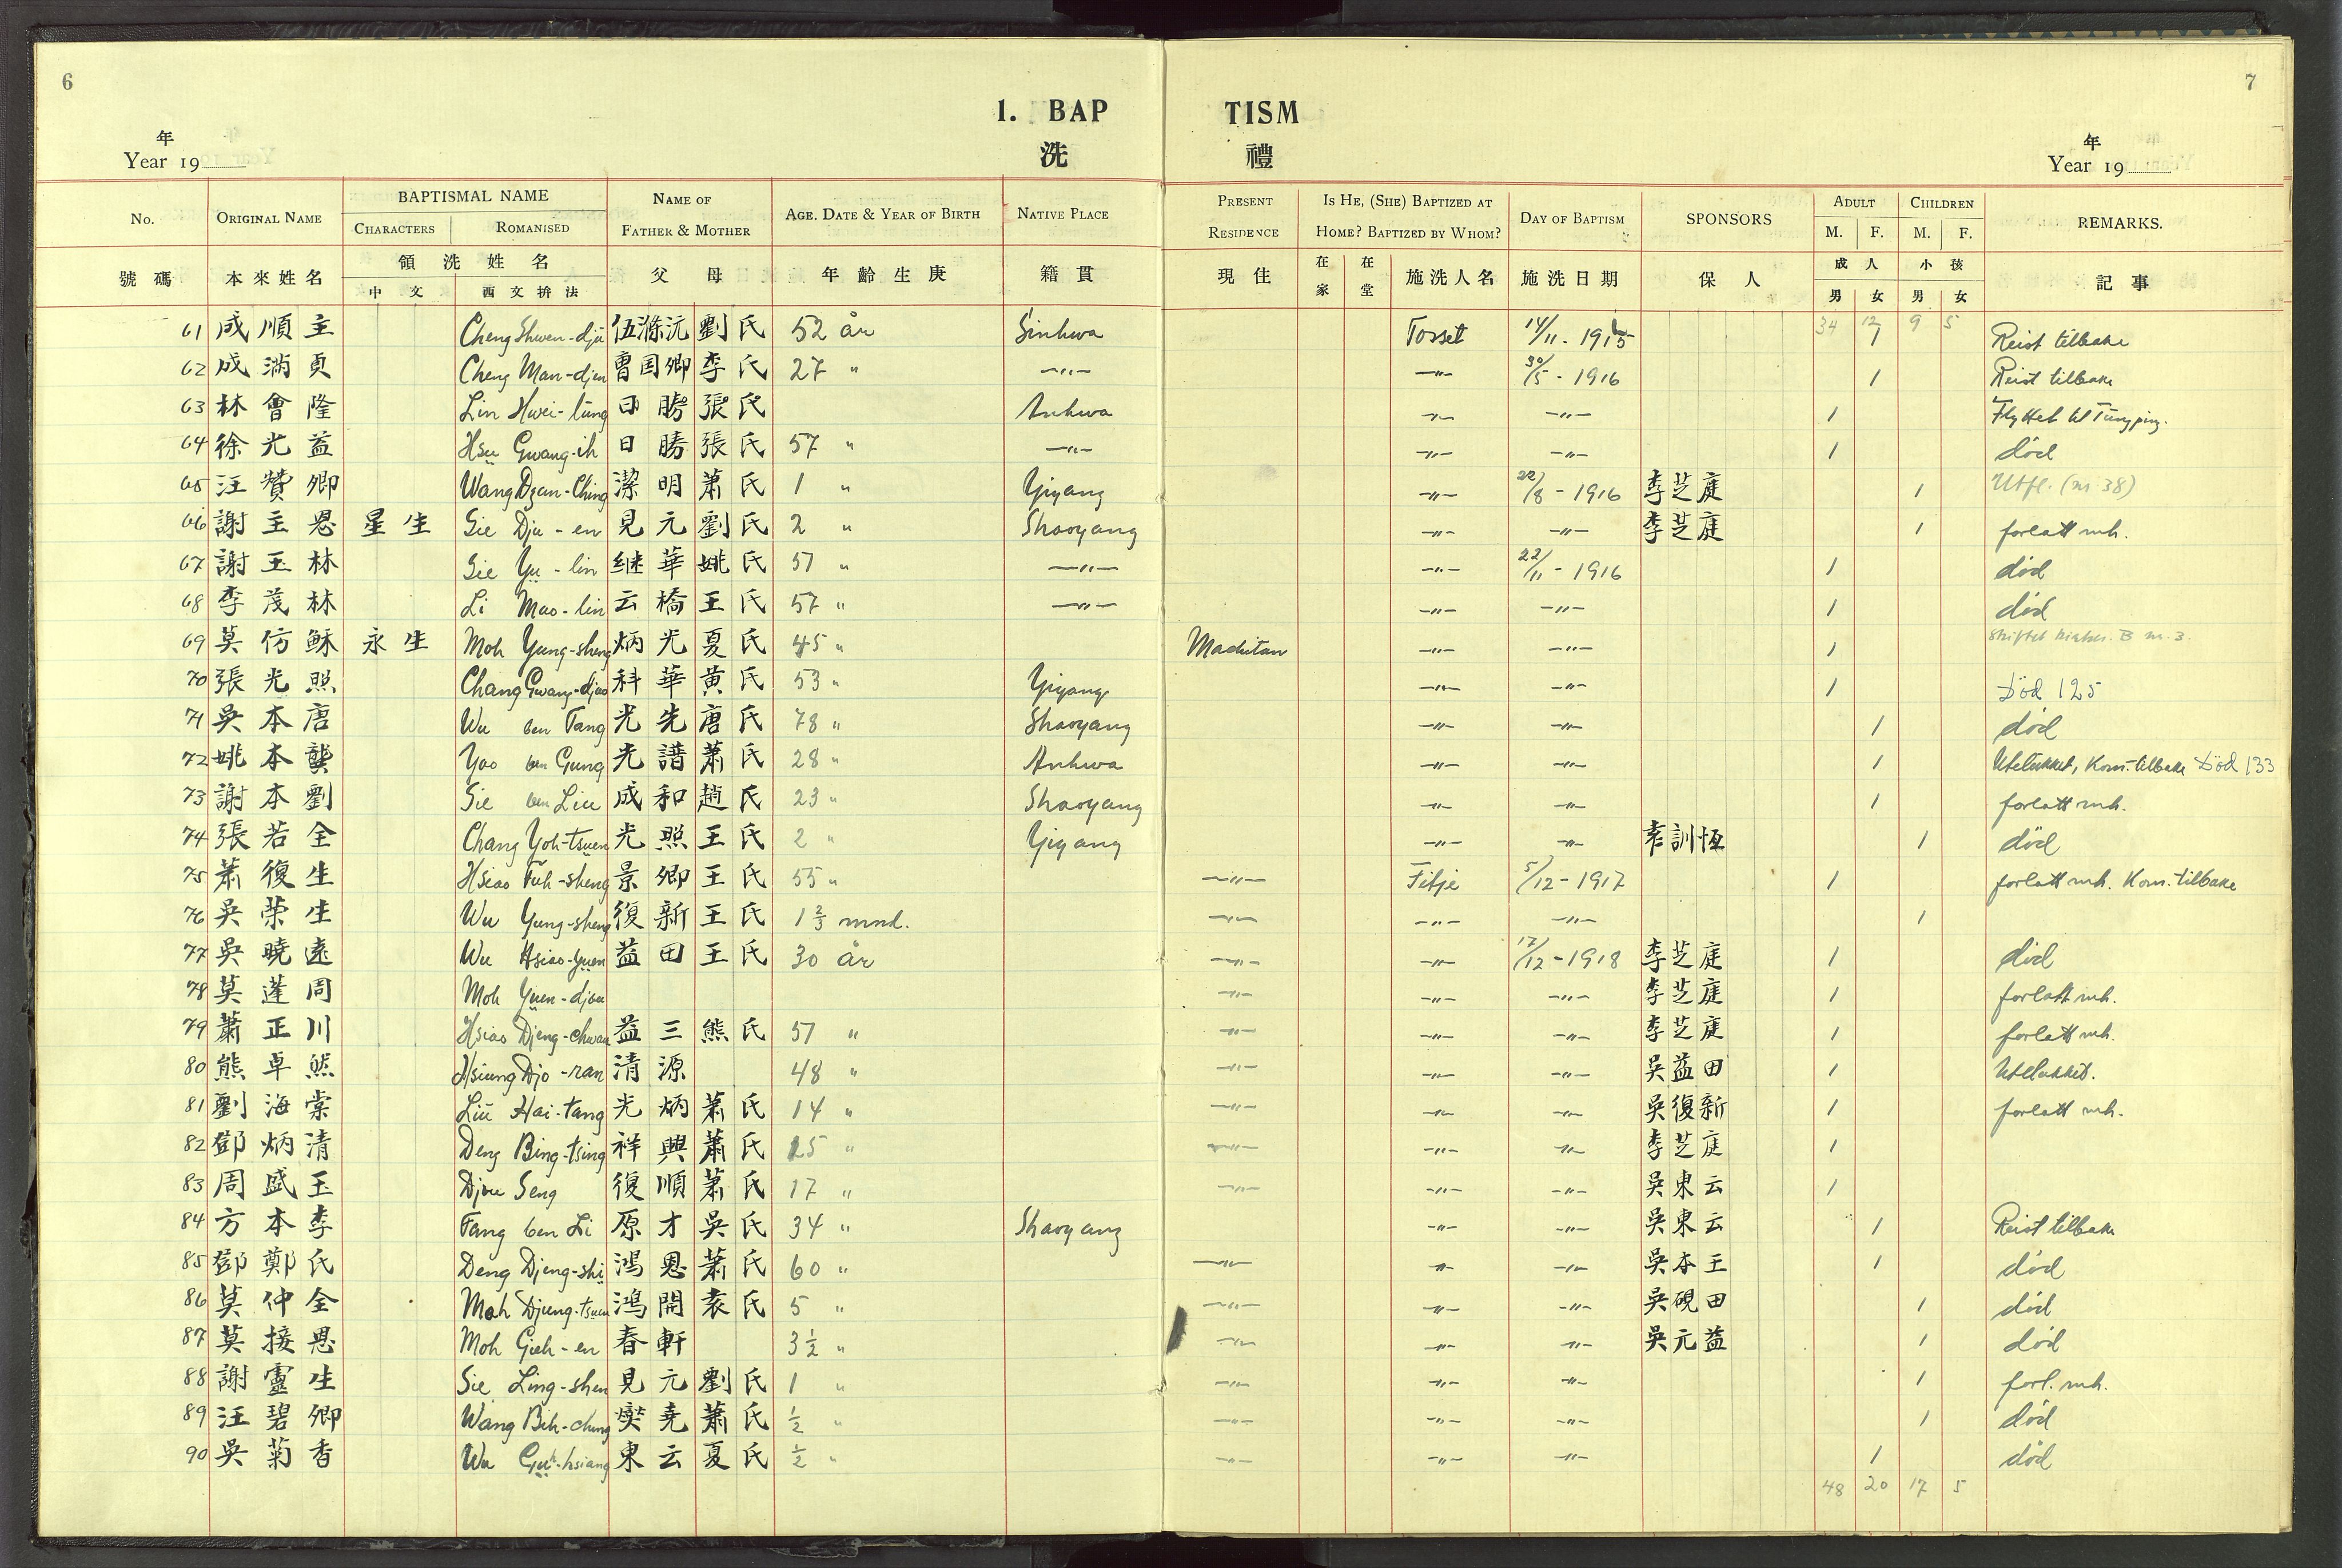 6
7
1. BAP TISM
洗 禮
年
Year 19
年
Year 19
No. ORIGINAL NAME BAPTISMAL NAME CHARACTERS ROMANISED NAME OF FATHER & MOTHER AGE. DATE & YEAR OF BIRTH NATIVE PLACE PRESENT RESIDENCE IS HE, (SHE) BAPTIZED AT HOME? BAPTIZED BY WHOM? DAY OF BAPTISM SPONSORS ADULT M. F. CHILDREN M. F. REMARKS.
號碼 本來姓名 領洗姓名 中文 西文拚法 父母 年齡生庚 籍貫 現住 在家 在堂 施洗人名 施洗日期 保人 成人 男 女 小孩 男 女 記事
34 12 9 5
61 成順主 Cheng Shwen-djü 伍滌沅 劉氏 52 år Sinhwa Torset 14/11 - 1915 1 Reist tilbake
62 成滿貞 Cheng Man-djen 曾国卿 李氏 27 " -"- -"- 30/5 - 1916 1 Reist tilbake
63 林會隆 Lin Hwei-lung 日勝 張氏 Anhwa -"- -"- 1 Flyttet til Tungping.
64 徐光益 Hsu Gwang-ih 日勝 張氏 57 " -"- -"- -"- 1 död
65 汪贊卿 Wang Dzan-Ching 潔明 蕭氏 1 " Yiyang -"- 22/8 - 1916 李芝庭 1 Utfl. (nr. 38)
66 謝主恩 星生 Sie Dju-en 見元 劉氏 2 " Shaoyang -"- -"- 李芝庭 1 forlatt mh.
67 謝玉林 Sie Yu-lin 继華 姚氏 57 " -"- -"- 22/11 - 1916 1 död
68 李茂林 Li Mao-lin 云橋 王氏 57 " -"- -"- -"- 1 död
69 莫仿稣 永生 Moh Yung-sheng 炳光 夏氏 45 " Machitan -"- -"- 1
70 張光照 Chang Gwang-djao 科華 黄氏 53 " Yiyang -"- -"- 1 Död 125
71 吳本唐 Wu ben Tang 光先 唐氏 78 " Shaoyang -"- -"- 1 död
72 姚本龔 Yao ben Gung 光譜 蕭氏 28 " Anhwa -"- -"- 1 Utelukket, Kom. tilbake Död 133
73 謝本劉 Sie ben Liu 成和 趙氏 23 " Shaoyang -"- -"- 1 forlatt mh.
74 張若全 Chang Yoh-tsuen 光照 王氏 2 " Yiyang -"- -"- 訓恆 1 död
75 萧復生 Hsiao Fuh-sheng 景卿 王氏 55 " -"- Fitje 5/12 - 1917 1 forlatt mh. Kom. tilbake
76 吳荣生 Wu Yung-sheng 復新 王氏 1 2/3 mnd. -"- -"- -"- 1
77 吳曉遠 Wu Hsiao-yuen 益田 王氏 30 år -"- -"- 17/12 - 1918 李芝庭 1 död
78 莫蓮周 Moh Yuen-djou -"- -"- -"- 李芝庭 1 forlatt mh.
79 蕭正川 Hsiao Djeng-chwan 益三 熊氏 57 " -"- -"- -"- 李芝庭 1 forlatt mh.
80 熊卓然 Hsiung Djo-ran 清源 48 " -"- -"- -"- 吳益田 1 Utelukket.
81 劉海棠 Liu Hai-tang 光炳 萧氏 14 " -"- -"- -"- 吳復新 1 forlatt mh.
82 鄧炳清 Deng Bing-tsing 祥興 蕭氏 25 " -"- -"- -"- 李芝庭 1
83 周盛玉 Djou Seng 復順 萧氏 17 " -"- -"- -"- 吳東云 1
84 方本李 Fang ben Li 原才 吳氏 34 " Shaoyang -"- -"- 吳東云 1 Reist tilbake
85 鄧鄭氏 Deng Djeng-shi 鴻恩 蕭氏 60 " -"- -"- -"- 吳本王 1 död
86 莫仲全 Moh Djung-tsuen 鴻開 袁氏 5 " -"- -"- -"- 吳硯田 1 död
87 莫接恩 Moh Gieh-en 春軒 3 1/2 " -"- -"- -"- 吳元益 1 död
88 謝靈生 Sie Ling-shen 見元 劉氏 1 " -"- -"- -"- 1 forl. mh.
89 汪碧卿 Wang Bih-ching 堯 萧氏 1/2 " -"- -"- -"- 1 död
90 吳菊香 Wu Guh-hsiang 東云 夏氏 1/2 " -"- -"- -"- 1 död
48 20 17 5